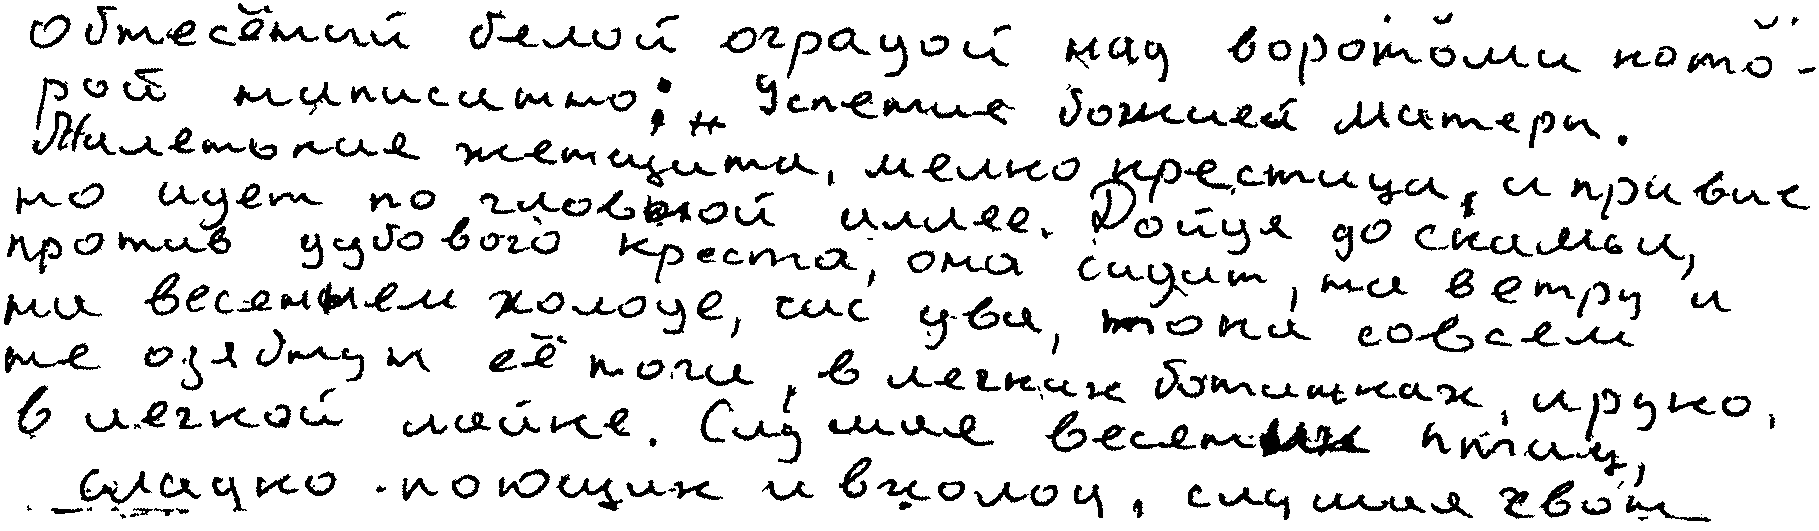 обнесённый белой оградой над воротоми кото-
рой написанно: „ Успение божией матери.
Маленькие женщина, мелко крестица, и привыч
но идет по гловной иллее. Дойдя до скамьи,
против дубового креста, она сидит, на ветру и
на весеннем холоде, час два, пока совсем
не озябнун её ноги, в легких ботинках, и руко,
в легкой лайке. Слушая весених птиц,
сладко поющих и в холод, слушая звон